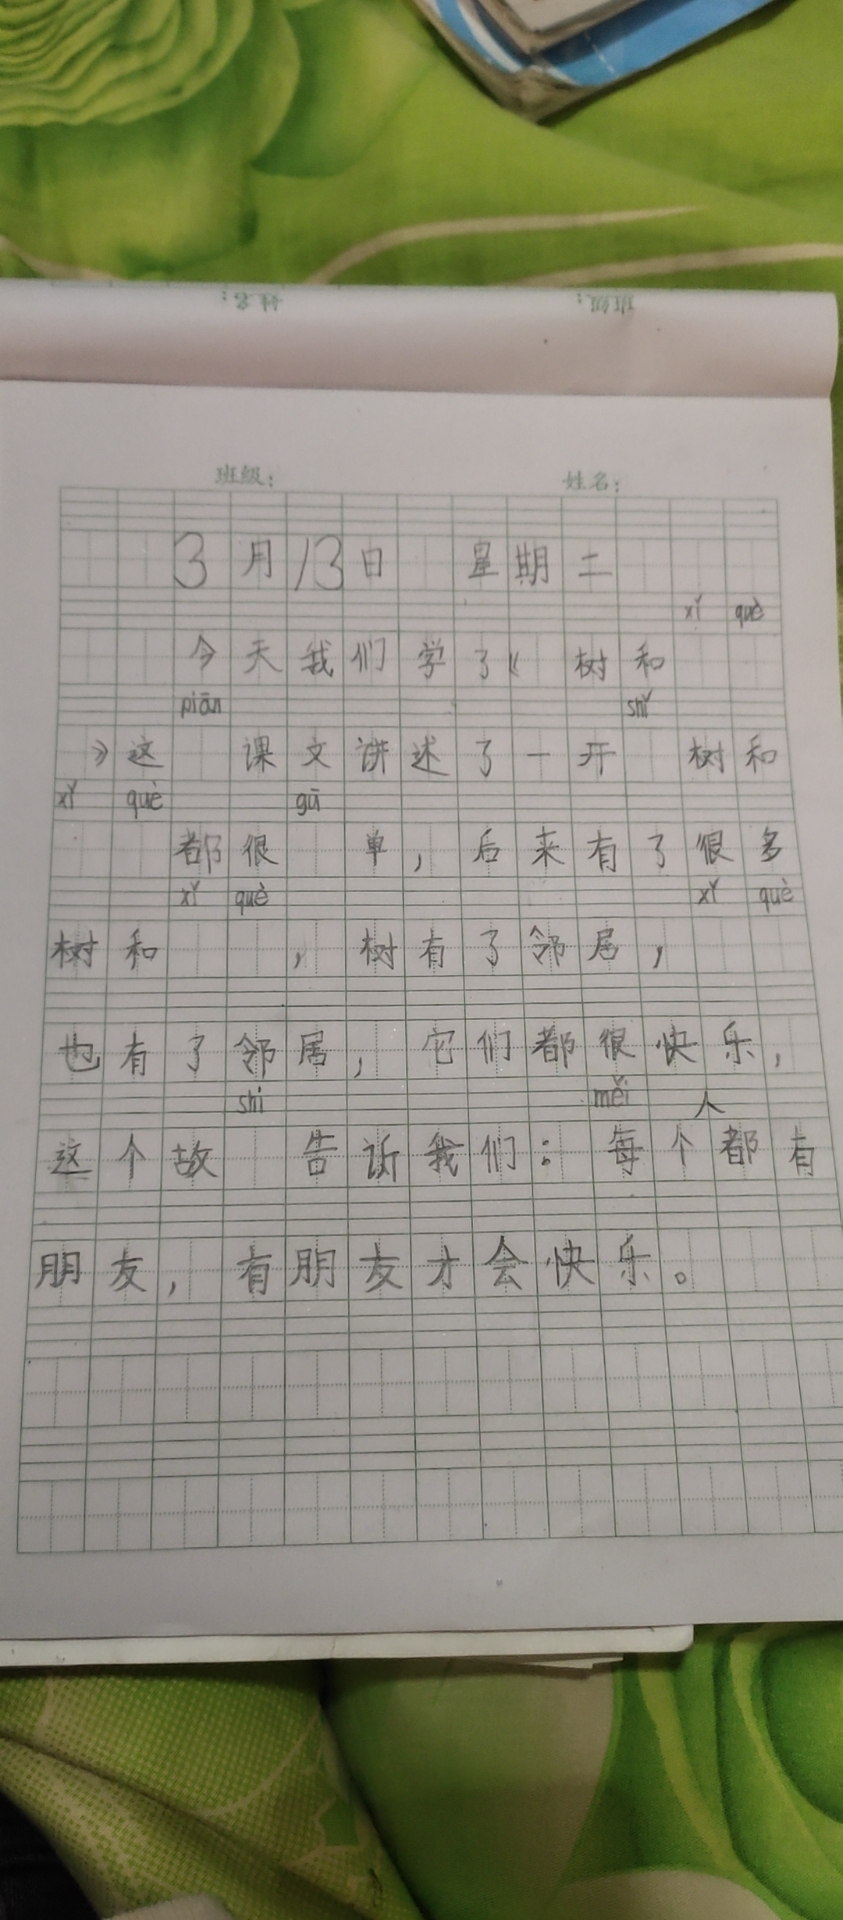 姓名： 班级：
班级： 姓名：
3月13日 星期二
xǐ què
今天我们学了《 树和
piān shǐ
》这 课文讲述了一开 树和
xǐ què gū
都很 单，后来有了很多
xǐ què xǐ què
树和 ，树有了邻居，
也有了邻居，它们都很快乐，
shi měi 人
这个故 告诉我们：每个都有
朋友，有朋友才会快乐。